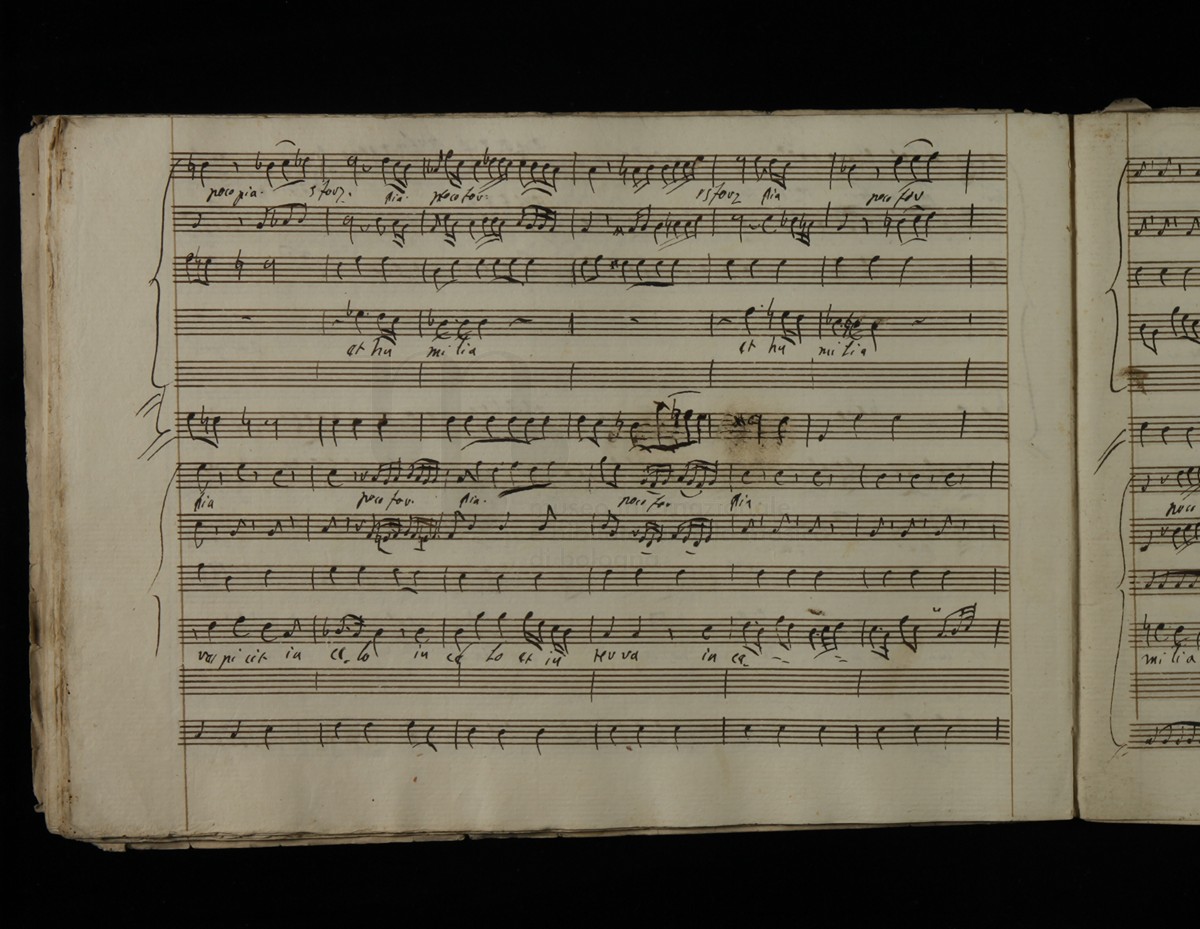 poco pia. sforz. pia. poco for. sforz pia poco for
et hu milia et hu milia
pia poco for. pia. poco for pia
poco
res pi cit in ce lo in ce lo et in terra in ce
milia